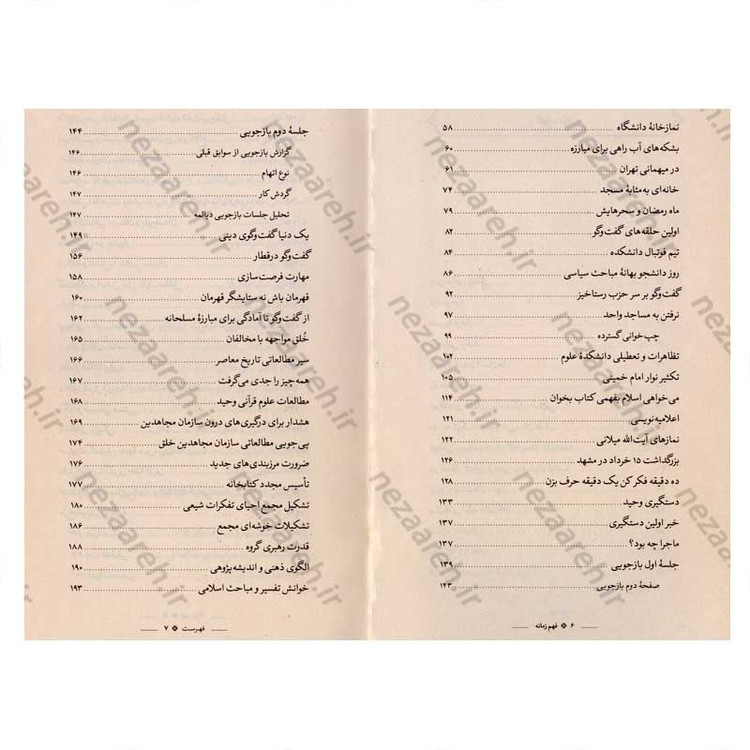 نمازخانهٔ دانشگاه ..... ۵۸
بشکه‌های آب راهی برای مبارزه ..... ۶۰
در میهمانی تهران ..... ۶۱
خانه‌ای به‌مثابهٔ مسجد ..... ۷۴
ماه رمضان و سحرهایش ..... ۷۹
اولین حلقه‌های گفت‌وگو ..... ۸۲
تیم فوتبال دانشکده ..... ۸۴
روز دانشجو بهانهٔ مباحث سیاسی ..... ۸۶
گفت‌وگو بر سر حزب رستاخیز ..... ۹۲
نرفتن به مساجد واحد ..... ۹۷
چپ‌خوانی گسترده ..... ۹۹
تظاهرات و تعطیلی دانشکدهٔ علوم ..... ۱۰۲
تکثیر نوار امام خمینی ..... ۱۰۵
می‌خواهی اسلام بفهمی کتاب بخوان ..... ۱۱۴
اعلامیه‌نویسی ..... ۱۲۱
نمازهای آیت‌الله میلانی ..... ۱۲۲
بزرگداشت ۱۵ خرداد در مشهد ..... ۱۲۶
ده دقیقه فکر کن یک دقیقه حرف بزن ..... ۱۲۸
دستگیری وحید ..... ۱۳۳
خبر اولین دستگیری ..... ۱۳۷
ماجرا چه بود؟ ..... ۱۳۷
جلسهٔ اول بازجویی ..... ۱۳۹
صفحهٔ دوم بازجویی ..... ۱۴۳
۶ فهم زمانه
جلسهٔ دوم بازجویی ..... ۱۴۴
گزارش بازجویی از سوابق قبلی ..... ۱۴۶
نوع اتهام ..... ۱۴۶
گردش کار ..... ۱۴۷
تحلیل جلسات بازجویی دیالمه ..... ۱۴۷
یک دنیا گفت‌وگوی دینی ..... ۱۴۹
گفت‌وگو در قطار ..... ۱۵۶
مهارت فرصت‌سازی ..... ۱۵۸
قهرمان باش نه ستایشگر قهرمان ..... ۱۶۰
از گفت‌وگو تا آمادگی برای مبارزهٔ مسلحانه ..... ۱۶۲
خُلق مواجهه با مخالفان ..... ۱۶۵
سیر مطالعاتی تاریخ معاصر ..... ۱۶۶
همه‌چیز را جدی می‌گرفت ..... ۱۶۷
مطالعات علوم قرآنی وحید ..... ۱۶۸
هشدار برای درگیری‌های درون سازمان مجاهدین ..... ۱۶۹
پی‌جویی مطالعاتی سازمان مجاهدین خلق ..... ۱۷۴
ضرورت مرزبندی‌های جدید ..... ۱۷۶
تأسیس مجدد کتابخانه ..... ۱۷۷
تشکیل مجمع احیای تفکرات شیعی ..... ۱۸۰
تشکیلات خوشه‌ای مجمع ..... ۱۸۶
قدرت رهبری گروه ..... ۱۸۸
الگوی ذهنی و اندیشه‌پژوهی ..... ۱۹۰
خوانش تفسیر و مباحث اسلامی ..... ۱۹۳
فهرست ۷
nezaareh.ir